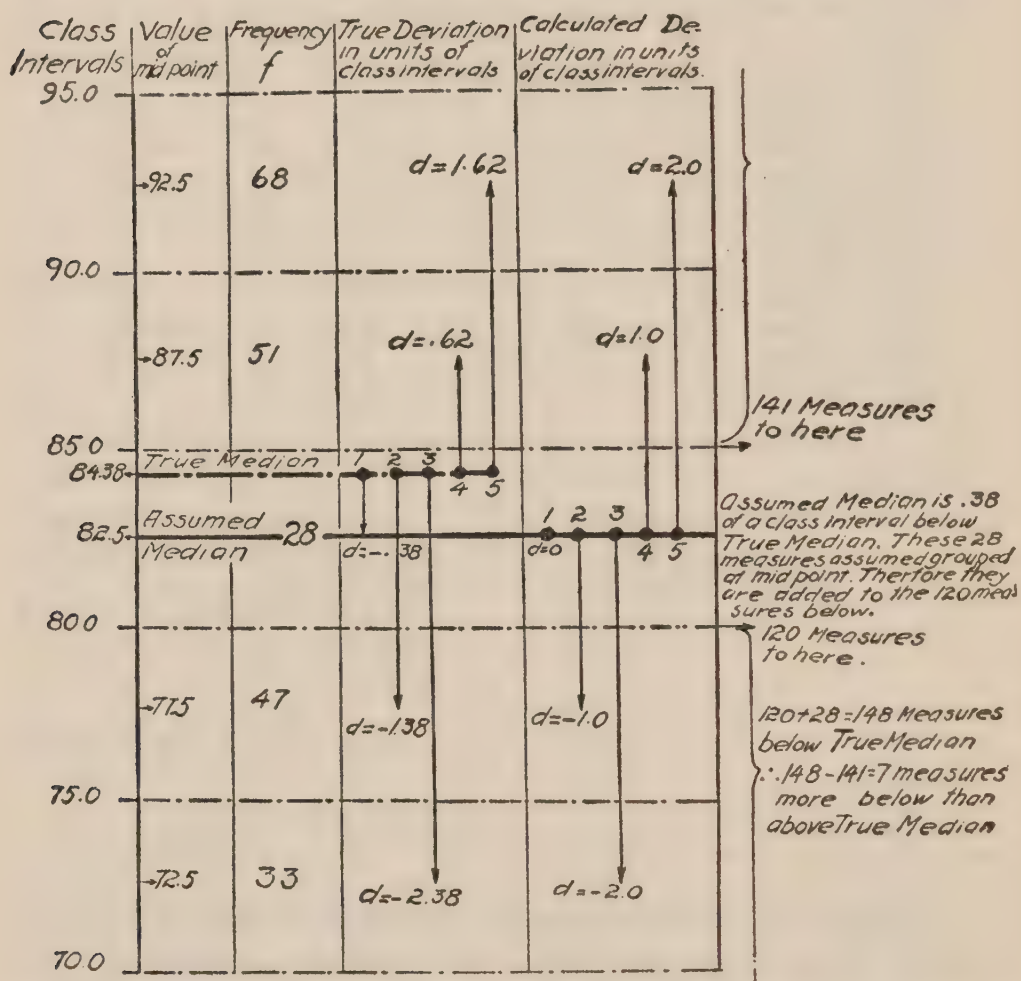 Class Intervals
Value of mid point
Frequency f
True Deviation in units of class intervals
Calculated Deviation in units of class intervals.
95.0
d=1.62
d=2.0
92.5
68
90.0
d=.62
d=1.0
87.5
51
141 Measures
to here
85.0
True Median
1 2 3
84.38
4 5
Assumed
28
1 2 3
82.5
Median
d=-.38
d=0
4 5
Assumed Median is .38
of a class interval below
True Median. These 28
measures assumed grouped
at mid point. Therfore they
are added to the 120 meas
sures below.
80.0
120 Measures
to here.
77.5
47
d=-1.38
d=-1.0
120+28=148 Measures
below True Median
∴ 148-141=7 measures
more below than
above True Median
75.0
72.5
33
d=-2.38
d=-2.0
70.0